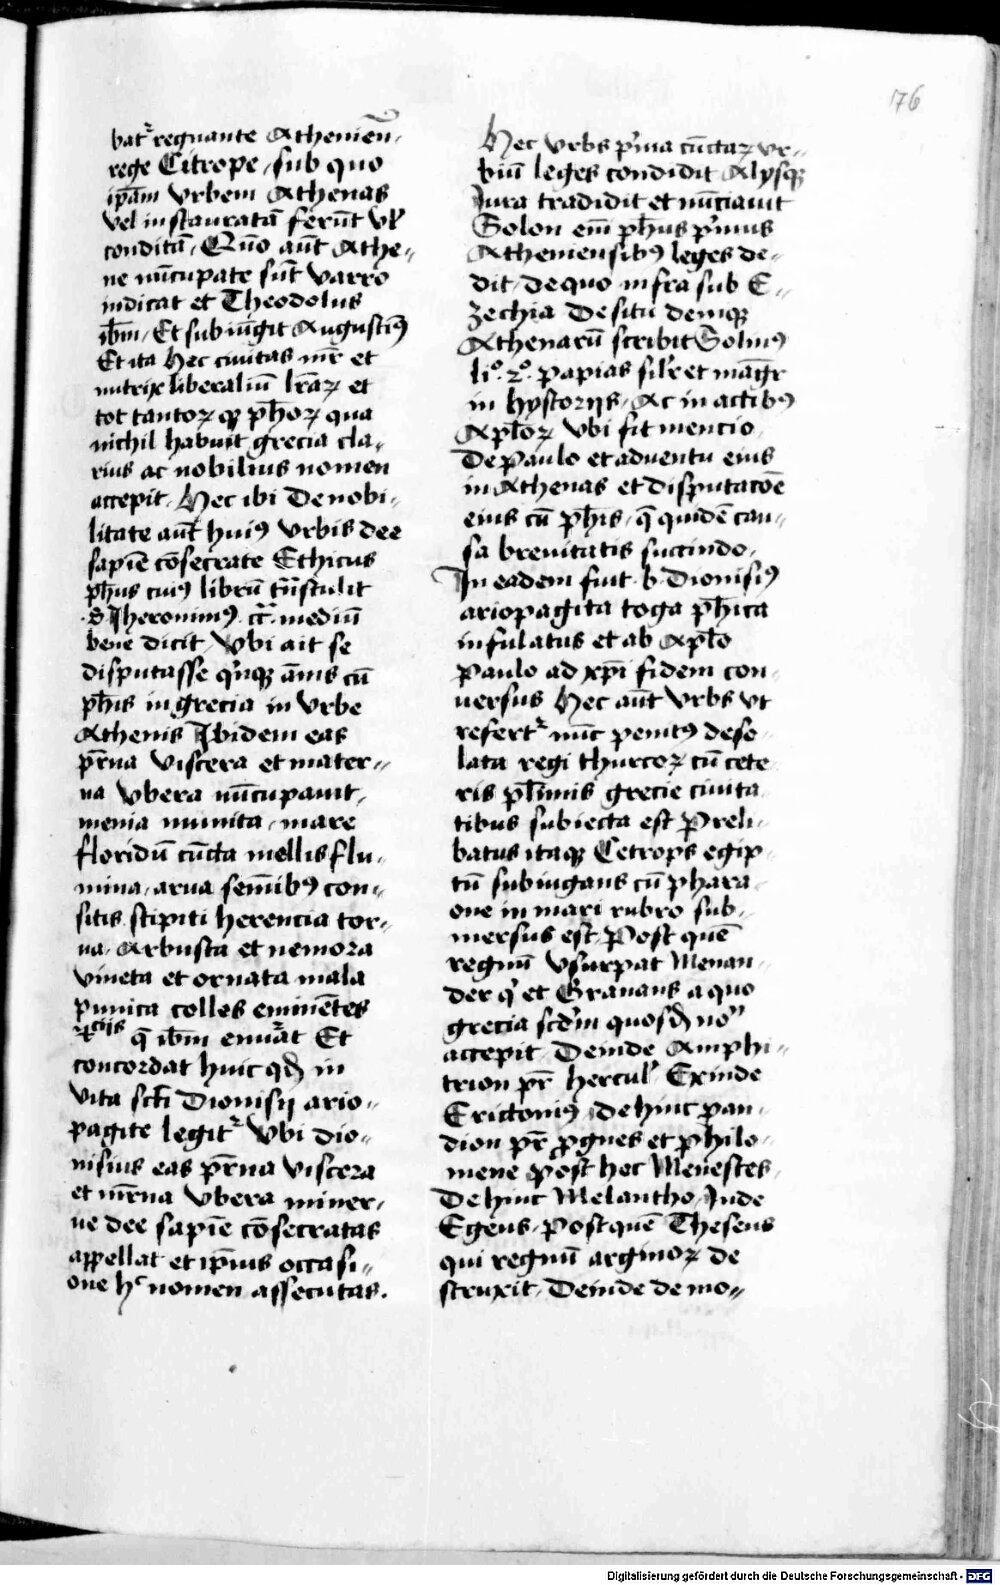 176
batr regnante Atheniēn.
rege Citrope, sub quo
ip̄am Vrbem Athenas
Vel instauratā ferūt Vl'
conditā, Quō aūt Athe-
ne nūcupate sūt Varro
indicat et Theodolus
ibm̄, Et subiūgit Augustin9
Et ita hec ciuitas mr̄ et
nutrix liberaliū lr̄aꝝ et
tot tantoꝝ qꝫ ph̄oꝝ qua
nichil habuit grecia cla-
rius ac nobilius nomen
accepit, Hec ibi De nobi-
litate aūt hui9 Vrbis dee
sapiē cōsecrate Ethicus
ph̄us cui9 librū trn̄stulit
.S. Iheronim9 mediū
bene dicit, Vbi ait se
disputasse qi̇nqꝫ ānis cū
ph̄is in grecia in Vrbe
Athenis Ibidem eas
pr̄na Viscera et mater-
na Vbera nūcupauit,
menia munita, mare
floridū cūcta mellis flu-
mina, arua semīib9 con-
sitis, stipiti herencia tor-
ua, Arbusta et nemora
Vineta et ornata mala
punica colles eminētes
q̄ ibm̄ enuat Et
concordat huic qd̄ in
Vita sct̄i Dionisij ario-
pagite legitr Vbi dio-
nisius eas pr̄na Viscera
et mr̄na Vbera miner-
ue dee sapiē cōsecratas
appellat et ip̄ius occasi-
one hc nomen assecutas.
Hec Vrbs pi̇ma cūctaꝝ vr-
biū leges condidit Alysqꝫ
Iura tradidit et nūciauit
Solon em̄ ph̄us pi̇mus
Atheniensib9 leges de-
dit, de quo infra sub E-
zechia De situ demqꝫ
Athenarū scribit Solin9
li°. 2°. papias silr̄ et
in hystorijs, Ac in actib9
Apl̄oꝝ Vbi fit mencio
De Paulo et aduentu eius
in Athenas et disputacōe
eius cū ph̄is, q̄ quidē cau-
sa breuitatis succindo,
In eadem fuit .b. Dionisi9
ariopagita toga ph̄ica
infulatus et ab Apl̄o
Paulo ad xp̄i fidem con-
uersus Hec aūt Vrbs Vt
refertr nūc penit9 deso-
lata regi thurcoꝝ cū cete-
ris pl̄imis grecie ciuita-
tibus subiecta est Preli-
batus itaqꝫ Cetrops egip-
tū subiugans cū phara-
one in mari rubro sub-
mersus est, Post quē
regnū Vsurpat Menan-
der qi̇ et Grauaus a quo
grecia scd̄m quosd̄ noꝰ
accepit, Deinde Amphi-
trion pr̄ hercul' Exinde
Erictoni9, dehinc pan-
dion pr̄ prognes et philo-
mene Post hec Menestes,
Dehinc Melantho, Inde
Egeus, Post quē Theseus
qui regnū arginoꝝ de
struxit, Deinde demo-
Digitalisierung gefördert durch die Deutsche Forschungsgemeinschaft - DFG